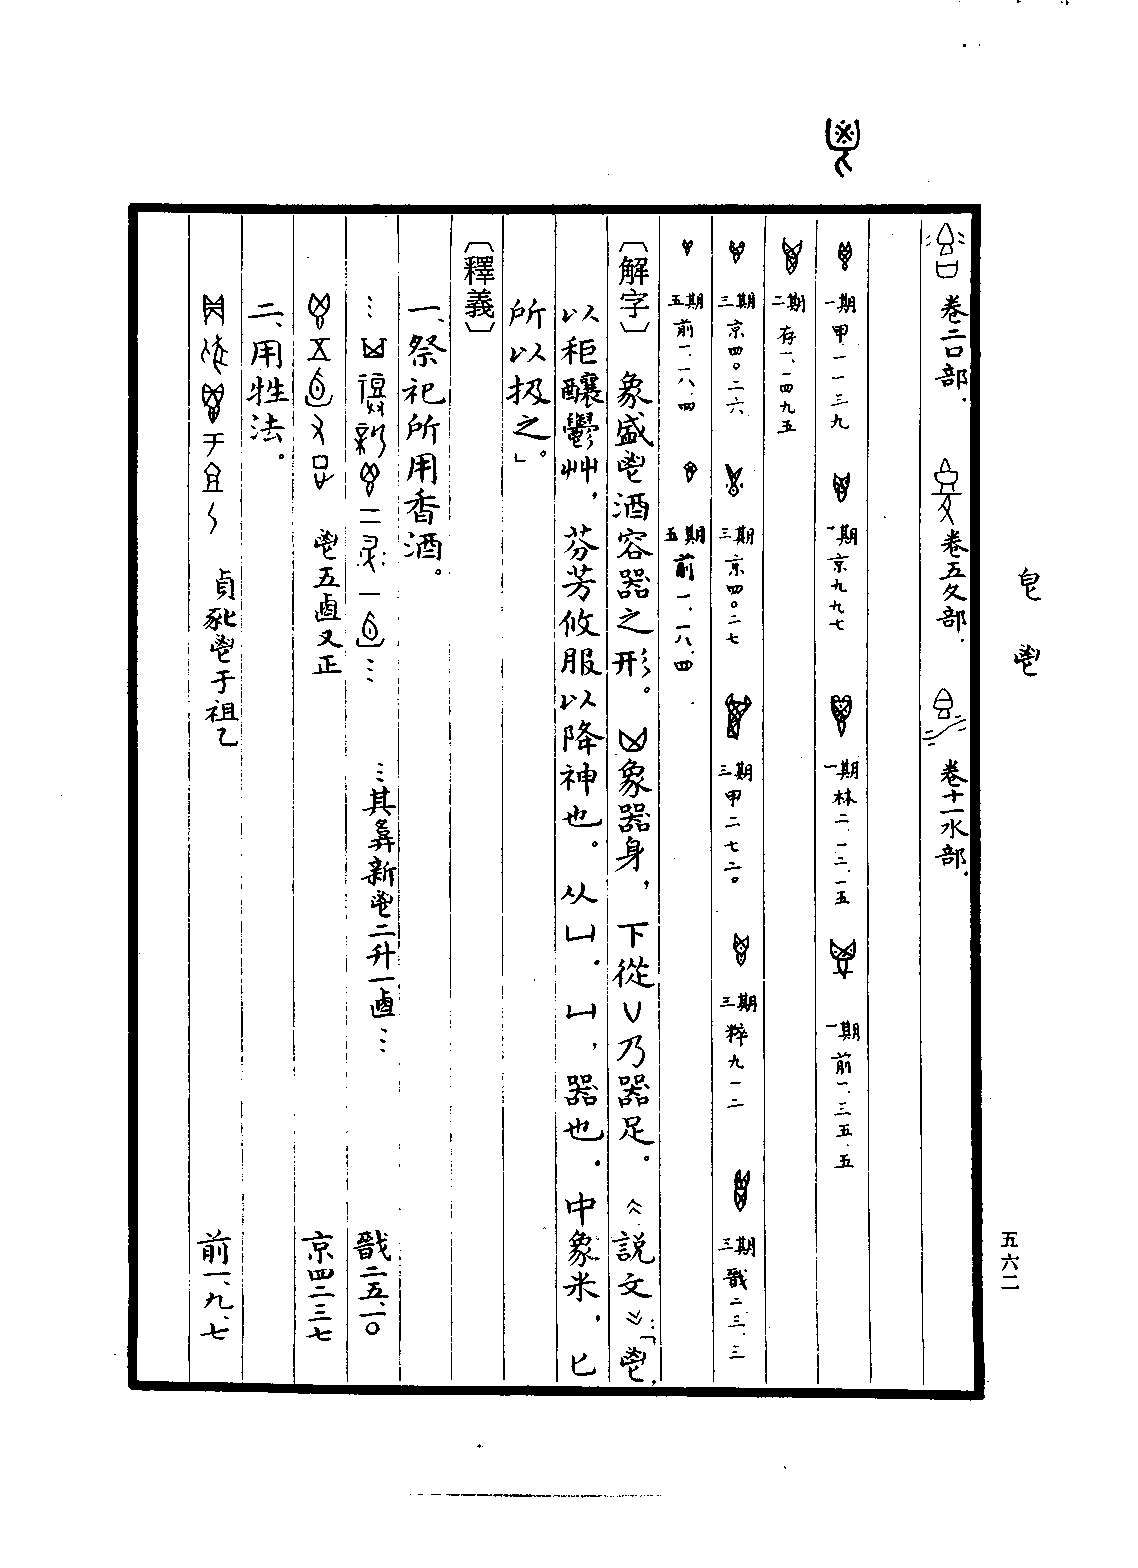 皀 鬯
五六二
卷二口部. 卷五夊部. 卷十一水部.
一期 甲一一三九 一期 京九九七 一期 林二.一二.一五 一期 前一.三五.五
二期 存一.一四九五
三期 京四〇二六 三期 京四〇二七 三期 甲二七二〇 三期 粹九一二 三期 戩二.三.三
五期 前一.一八.四 五期 前一.一八.四
〔解字〕 象盛鬯酒容器之形。 象器身，下從∨乃器足。《說文》：「鬯，
以秬釀鬱艸，芬芳攸服以降神也。从凵.凵，器也.中象米，匕
所以扱之。」
〔釋義〕
一、祭祀所用香酒。
… … …其彝新鬯二升一卣… 戩二五.一〇
鬯五卣又正 京四二三七
二、用牲法。
貞豼鬯于祖乙 前一、九、七